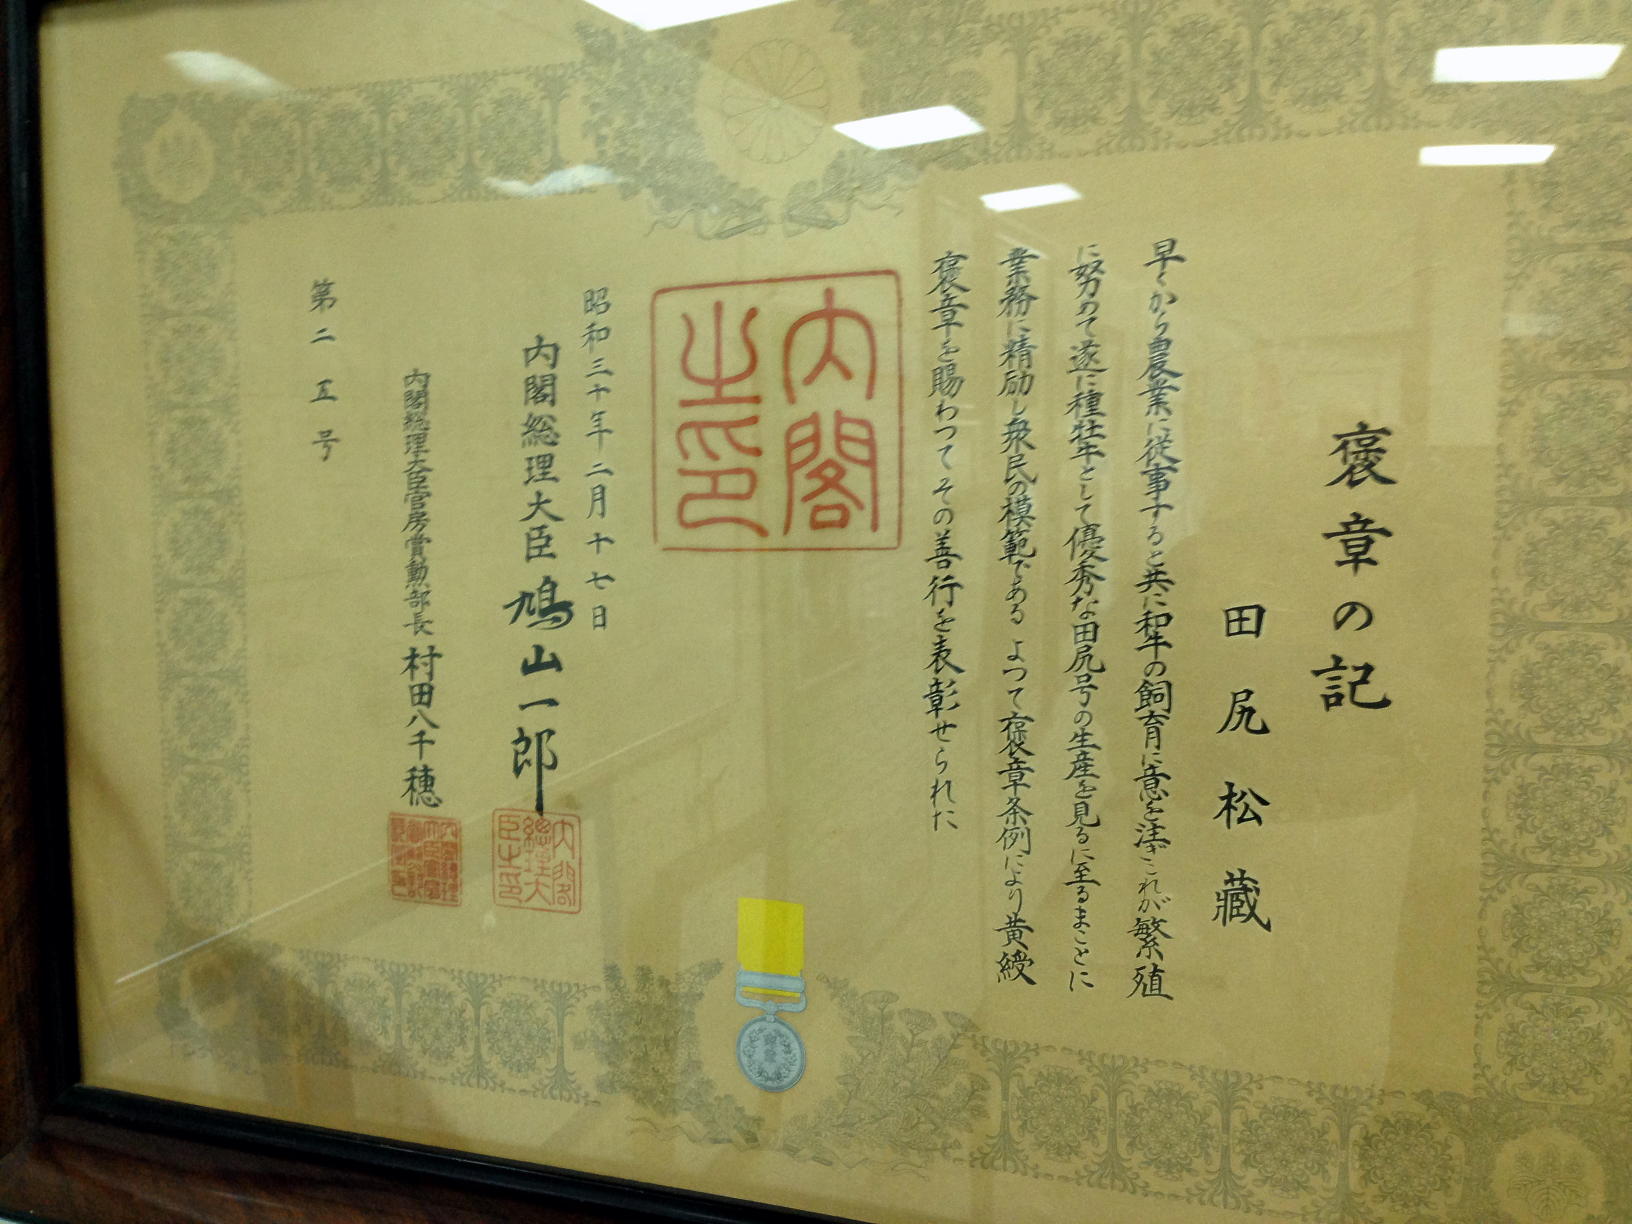 褒章の記
田尻松藏
早くから農業に従事すると共に和牛の飼育に意を注ぎこれが繁殖
に努めて遂に種牡牛として優秀な田尻号の生産を見るに至るまことに
業務に精励し衆民の模範である よつて褒章条例により黄綬
褒章を賜わつてその善行を表彰せられた
内閣之印
昭和三十年二月十七日
内閣総理大臣 鳩山一郎
内閣総理大臣之印
内閣総理大臣官房賞勲部長 村田八千穂
第二五号